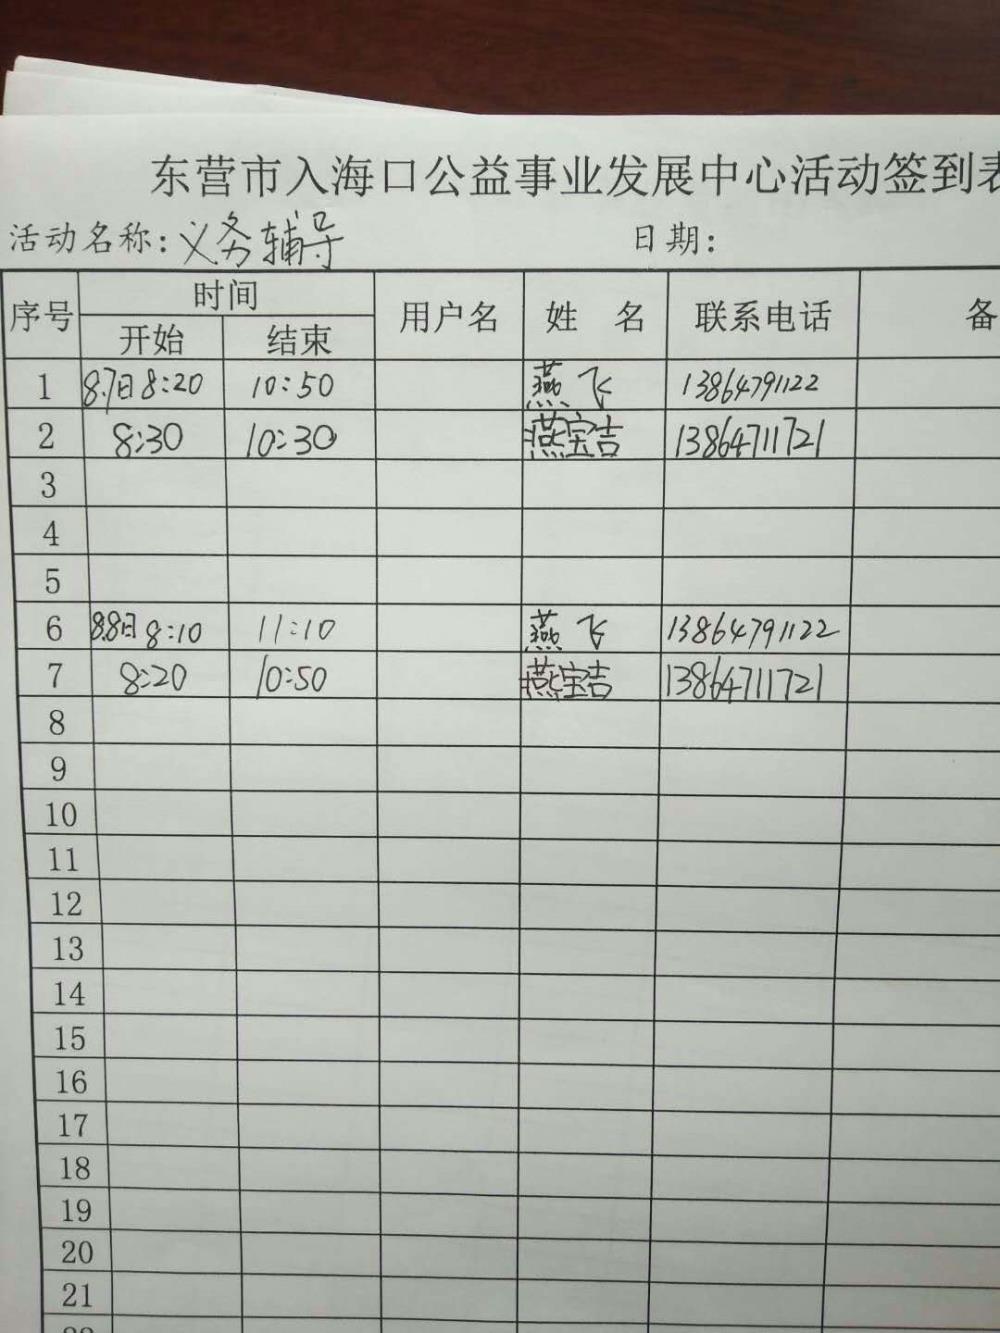 东营市入海口公益事业发展中心活动签到表
活动名称:义务辅导 日期:
序号 时间 用户名 姓 名 联系电话 备
开始 结束
1 8.7日8:20 10:50 燕飞 13864791122
2 8:30 10:30 燕宝吉 13864711721
3
4
5
6 8.8日8:10 11:10 燕飞 13864791122
7 8:20 10:50 燕宝吉 13864711721
8
9
10
11
12
13
14
15
16
17
18
19
20
21